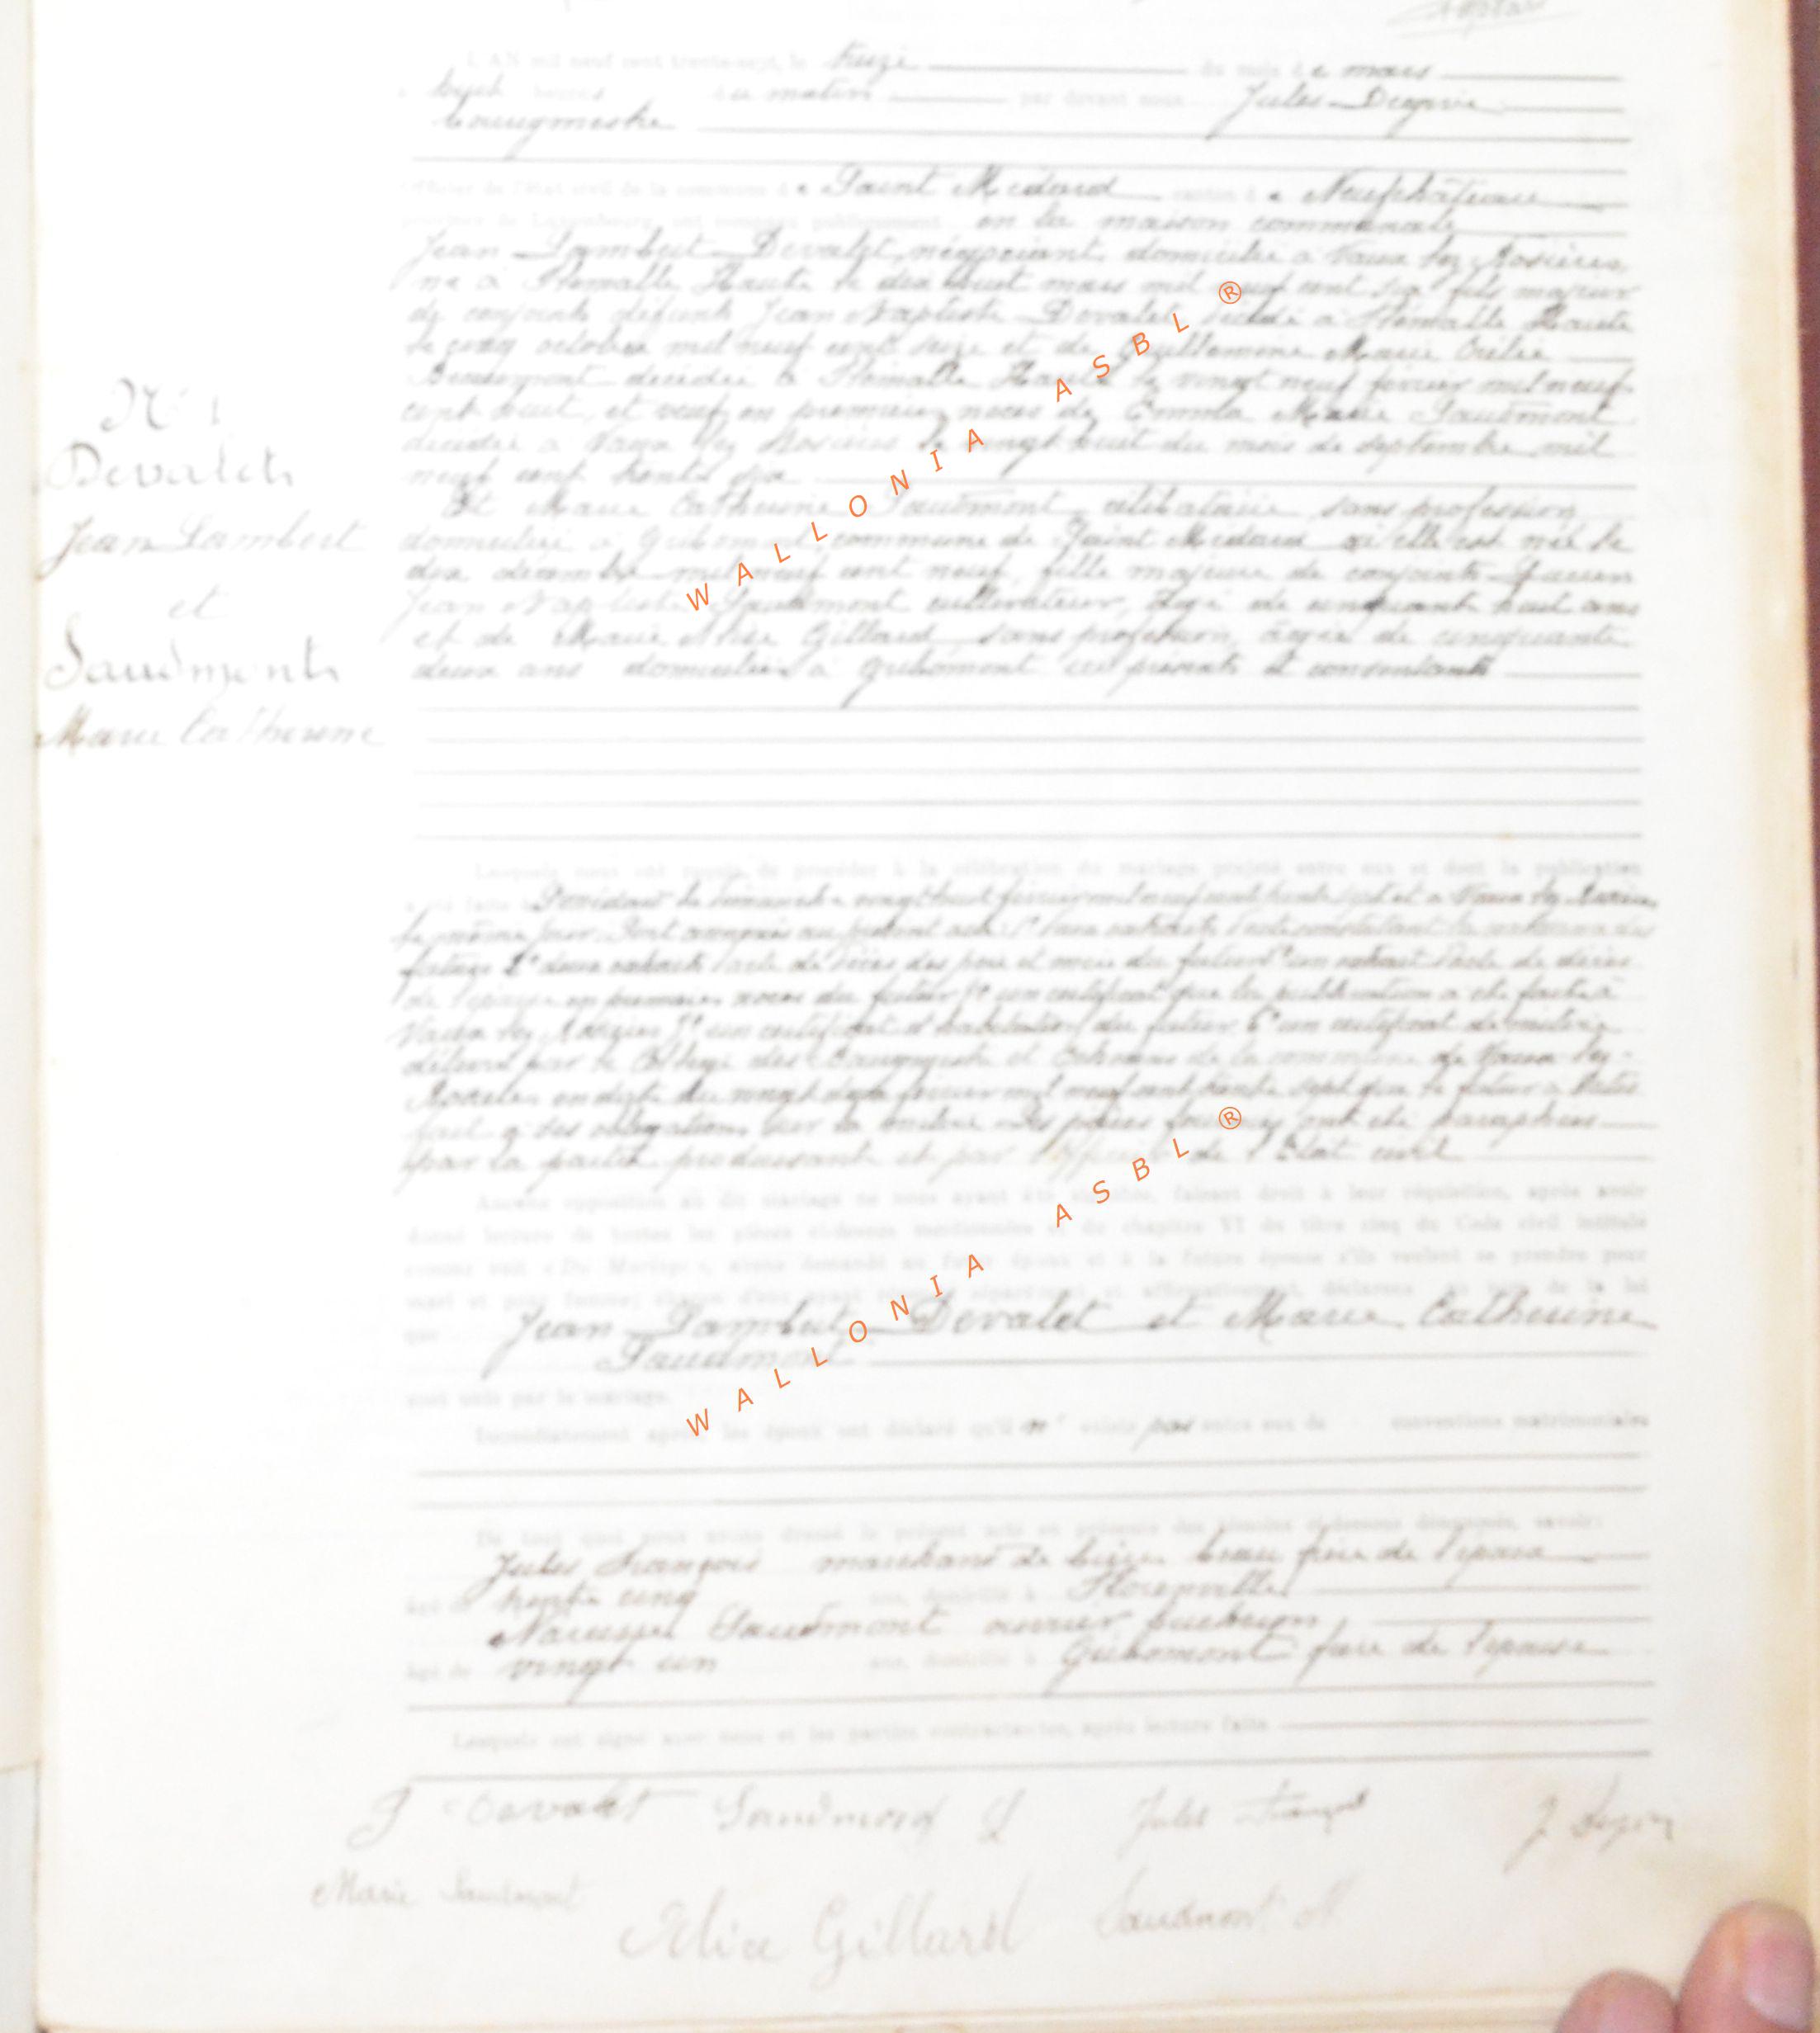 L'AN mil neuf cent trente-sept, le treize du mois de mars
à huit heures du matin par devant nous Jules
bourgmestre
Officier de l'état civil de la commune de Saint Médard canton de Neufchâteau
province de Luxembourg, ont comparu publiquement en la maison communale
Jean Lambert Devalet, négociant, domicilié à Vaux lez Rosières
né à Haute le dix huit mars mil neuf cent six fils majeur
de conjoints défunts Jean Baptiste Devalet décédé à Haute
le cinq octobre mil neuf cent seize et de Guillemine Marie
décédée à Haute le vingt neuf février mil neuf
cent huit, et veuf en premières noces de Emma Marie Saudmont
décédée à Vaux lez Rosières le vingt huit du mois de septembre mil
neuf cent trente six
N° 1
Devalet
Jean Lambert
et
Saudmont
Marie Catherine
Et Marie Catherine Saudmont, célibataire, sans profession
domiciliée à commune de Saint Médard où elle est née le
dix décembre mil neuf cent neuf, fille majeure de conjoints Lucien
Jean Baptiste Saudmont cultivateur, âgé de cinquante huit ans
et de Marie Alise Gillard sans profession, âgée de cinquante
deux ans domiciliés à ici présents et consentants
Lesquels nous ont requis de procéder à la célébration du mariage projeté entre eux et dont la publication
a été faite à le dimanche vingt huit février mil neuf cent trente sept et à Vaux lez Rosières
le même jour. Sont annexés au présent acte: 1° deux extraits d'acte constatant la naissance des
futurs 2° deux extraits d'acte de décès des père et mère du futur 3° un extrait d'acte de décès
de l'épouse en premières noces du futur 4° un certificat que la publication a été faite à
Vaux lez Rosières 5° un certificat d'habitation du futur 6° un certificat de milice
délivré par le Collège des Bourgmestre et Echevins de la commune de Vaux-lez-
Rosières en date du vingt février mil neuf cent trente sept que le futur a satis
fait à ses obligations sur la milice. Les pièces fournies ont été paraphées
par la partie produisante et par l'Officier de l'Etat civil
Aucune opposition au dit mariage ne nous ayant été signifiée, faisant droit à leur réquisition, après avoir
donné lecture de toutes les pièces ci-dessus mentionnées et du chapitre VI du titre cinq du Code civil intitulé
comme suit « Du Mariage », avons demandé au futur époux et à la future épouse s'ils veulent se prendre pour
mari et pour femme; chacun d'eux ayant répondu séparément et affirmativement, déclarons au nom de la loi
que Jean Lambert Devalet et Marie Catherine
Saudmont
sont unis par le mariage.
Immédiatement après, les époux ont déclaré qu'il n'existe pas entre eux de conventions matrimoniales
De tout quoi nous avons dressé le présent acte en présence des témoins ci-dessous dénommés, savoir:
Jules François marchand de bière beau frère de l'épouse
âgé de trente cinq ans, domicilié à Florenville
Narcisse Saudmont ouvrier
âgé de vingt un ans, domicilié à frère de l'épouse
Lesquels ont signé avec nous et les parties contractantes, après lecture faite
J Devalet Saudmont L Jules François
Marie Saudmont
Alice Gillard Saudmont N
WALLONIA ASBL ®
WALLONIA ASBL ®